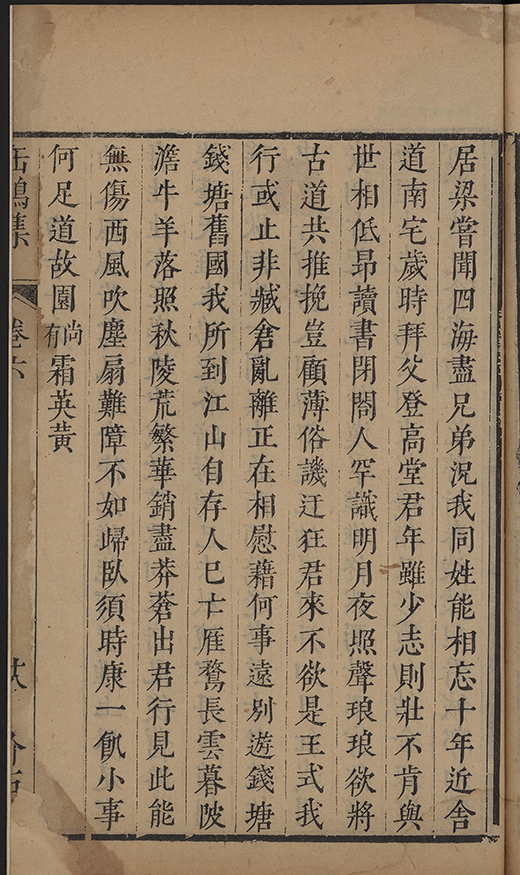 居梁嘗聞四海盡兄弟況我同姓能相忘十年近舍
道南宅歲時拜父登高堂君年雖少志則壯不肯與
世相低昂讀書閉閤人罕識明月夜照聲琅琅欲將
古道共推挽豈顧薄俗譏迂狂君來不欲是王式我
行或止非臧倉亂離正在相慰藉何事遠別遊錢塘
錢塘舊國我所到江山自存人已亡雁鶩長雲暮陂
澹牛羊落照秋陵荒繁華銷盡莽蒼出君行見此能
無傷西風吹塵扇難障不如歸臥須時康一飢小事
何足道故園尚有霜英黃
鳴集
卷六